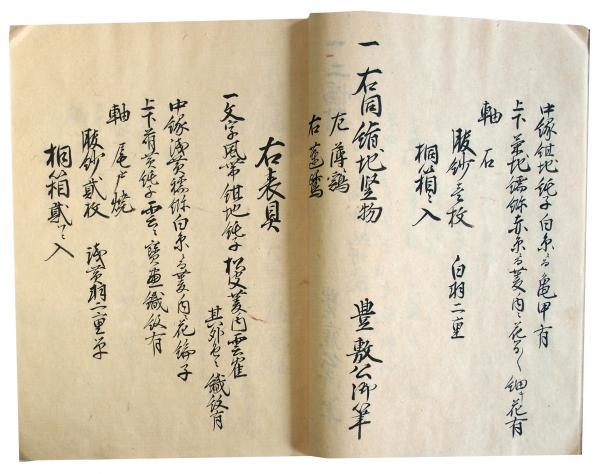 中縁紺地純子白糸ニ而亀甲有
上下茶地繻珍赤糸ニ而菱内ニ花
軸 石
服紗壱枚 白羽二重
桐箱ニ入
一右同絹地竪物 豊敷公御筆
左薄鶉
右蓮鷺
右表具
一文字風帯紺地純子 菱内雲雀
其外色々織紋有
中縁浅黄繻珍白糸ニ而菱内花 子
上下萌黄純子雲ニ宝盡織紋有
軸 尾戸焼
服紗貳枚 浅黄羽二重単
桐箱貳ニ入